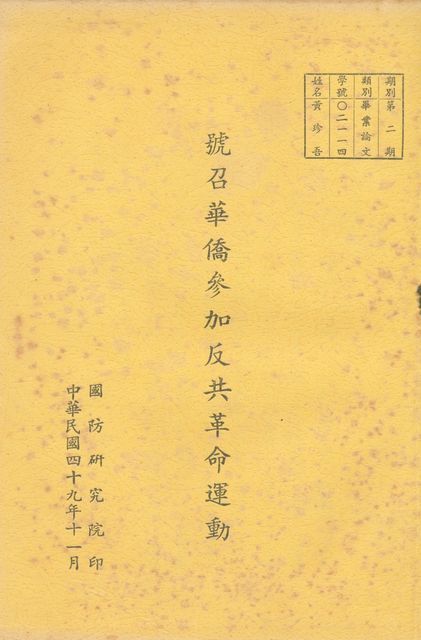 期別第二期
類別畢業論文
學號〇二一一四
姓名黃珍吾
號召華僑參加反共革命運動
國防研究院印
中華民國四十九年十一月